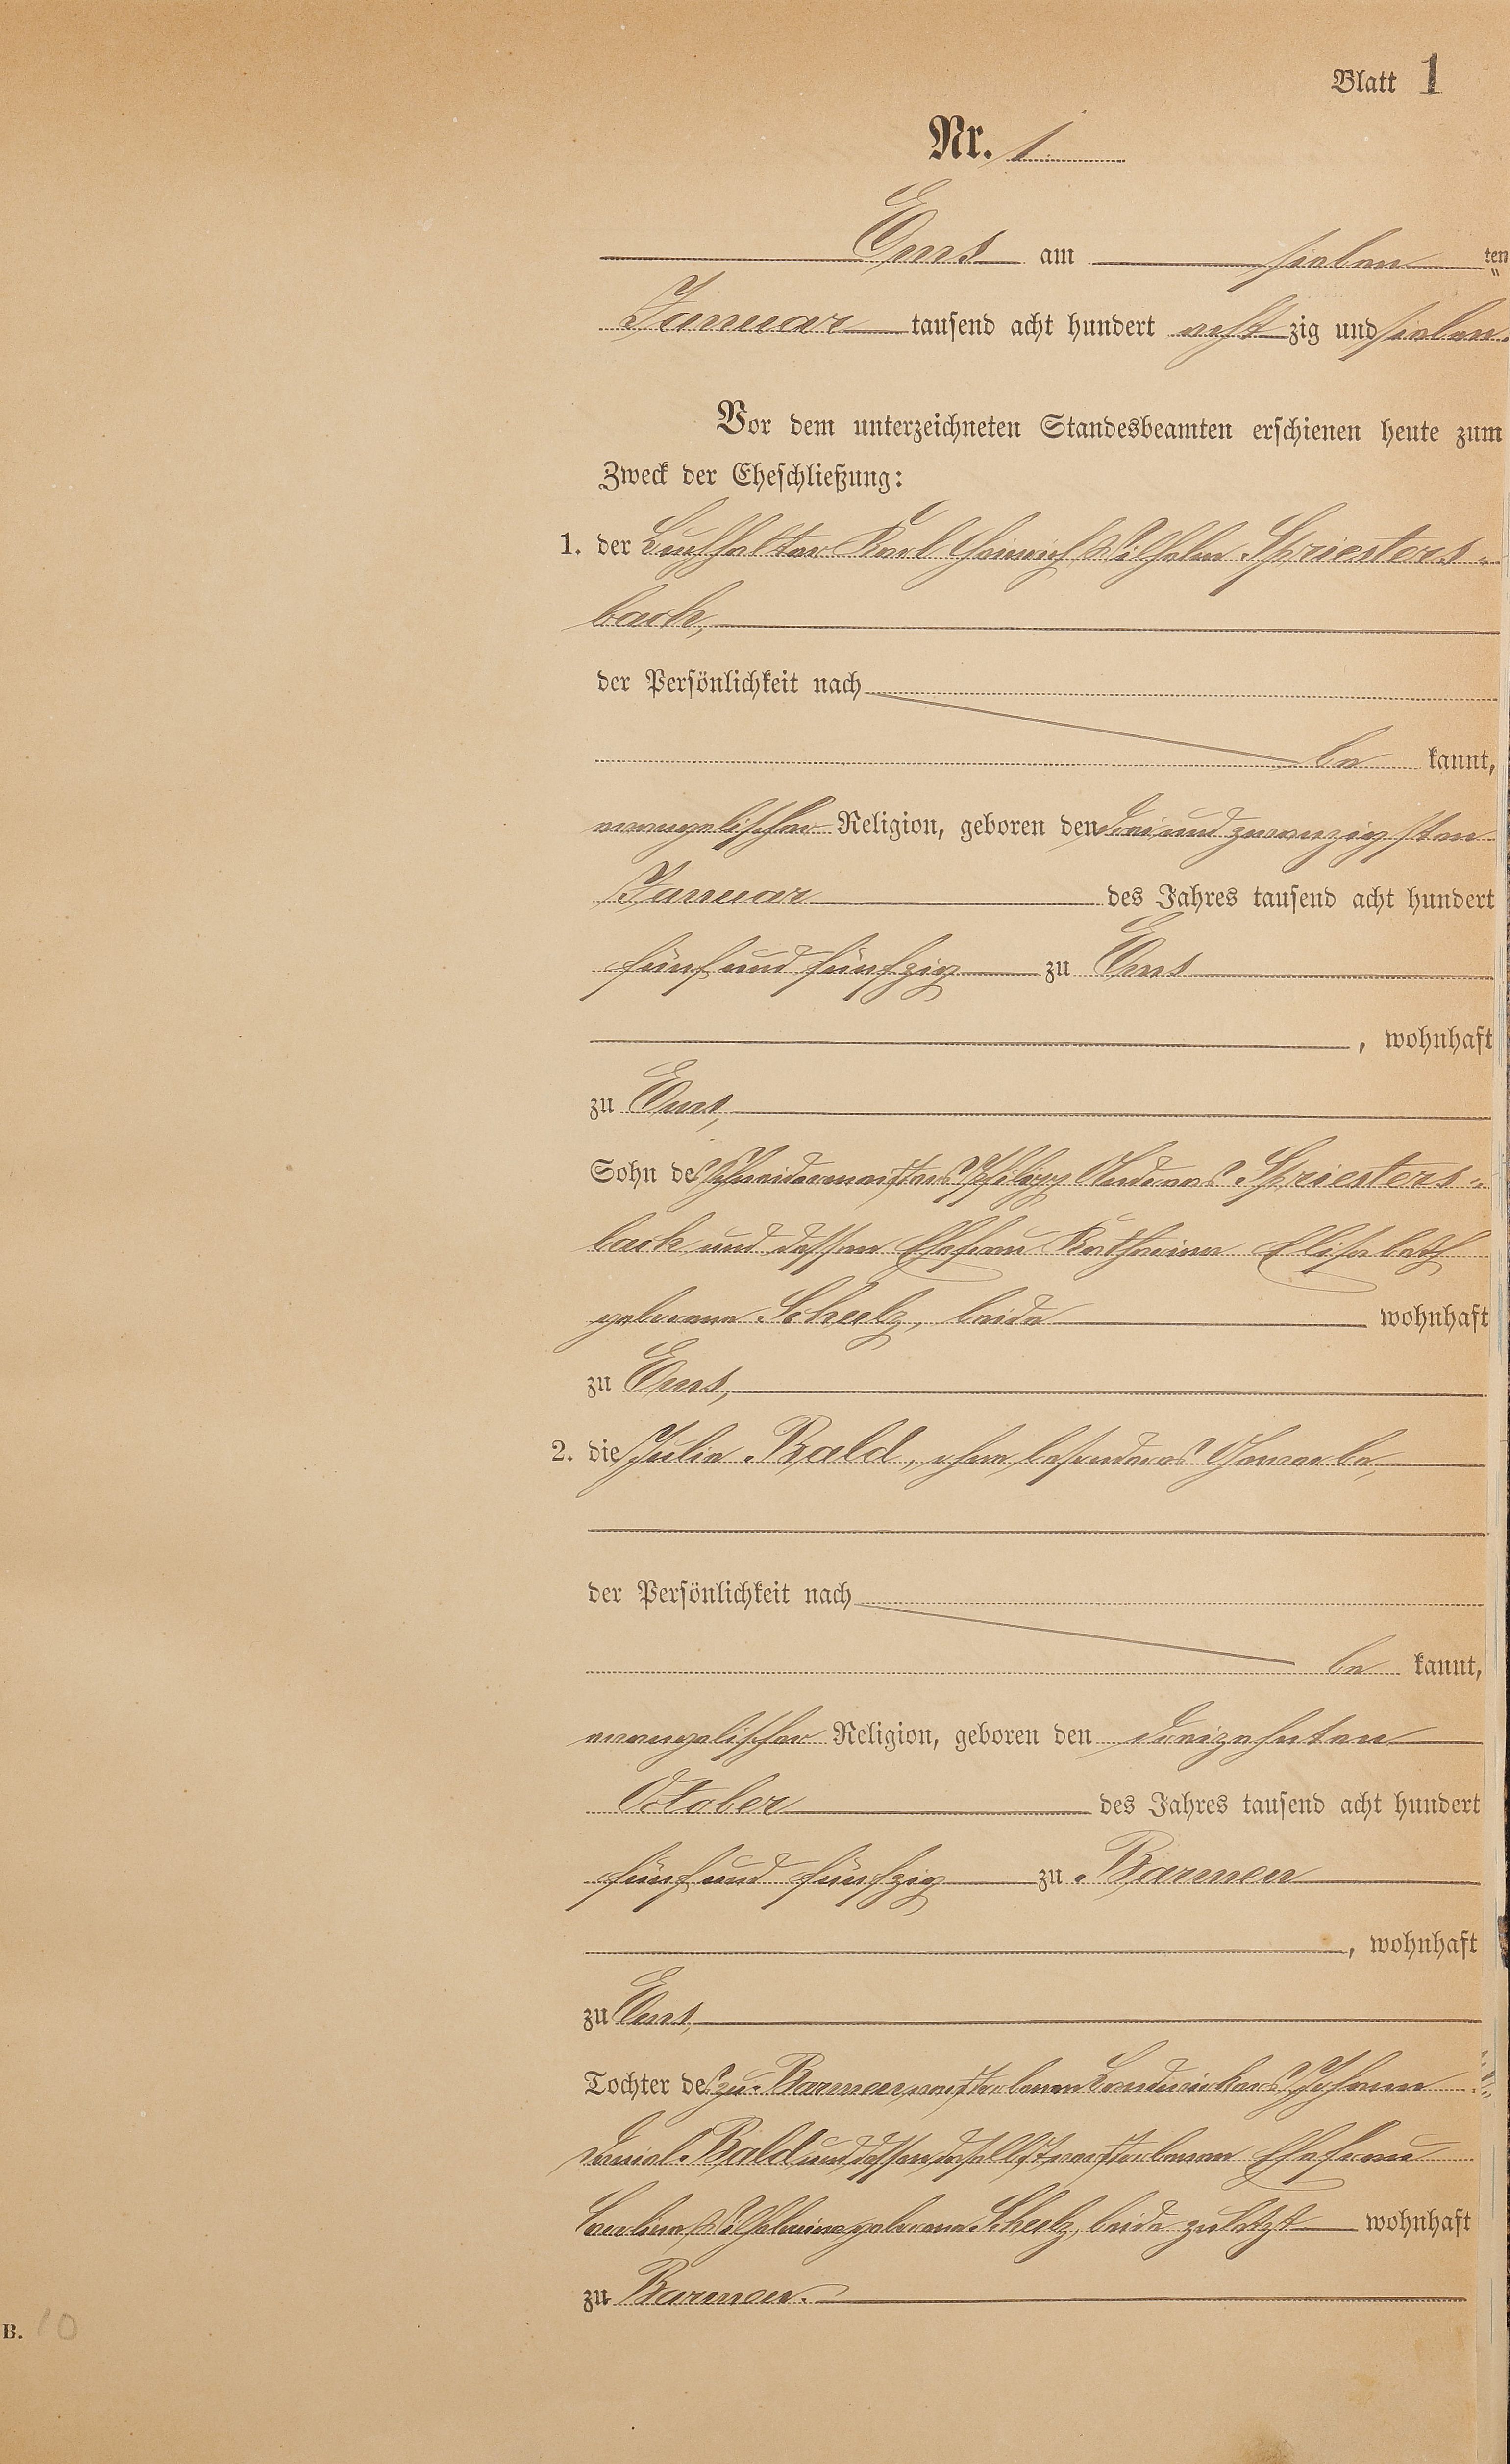 Blatt 1
Nr. 1
Ems am sieben ten
Januar tausend acht hundert acht zig und sieben.
Vor dem unterzeichneten Standesbeamten erschienen heute zum
Zweck der Eheschließung:
1. der Buchhalter Karl Heinrich Wilhelm Spriesters-
bach,
der Persönlichkeit nach
be kannt,
evangelischer Religion, geboren den drei und zwanzigsten
Januar des Jahres tausend acht hundert
fünf und fünfzig zu Ems
, wohnhaft
zu Ems,
Sohn des Schneidermeisters Philipp Andreas Spriesters-
bach und dessen Ehefrau Katharina Elisabeth
geborene Scheelz, beide wohnhaft
zu Ems,
2. die Julie Bald, ohne besonderes Gewerbe,
der Persönlichkeit nach
be kannt,
evangelischer Religion, geboren den dreizehnten
October des Jahres tausend acht hundert
fünf und fünfzig zu Barmen
, wohnhaft
zu Ems,
Tochter des zu Barmen verstorbenen Bandwirkers Johann
Daniel Bald und dessen daselbst verstorbenen Ehefrau
Wilhelmine geborene Scheelz, beide zuletzt wohnhaft
zu Barmen.
B. 10